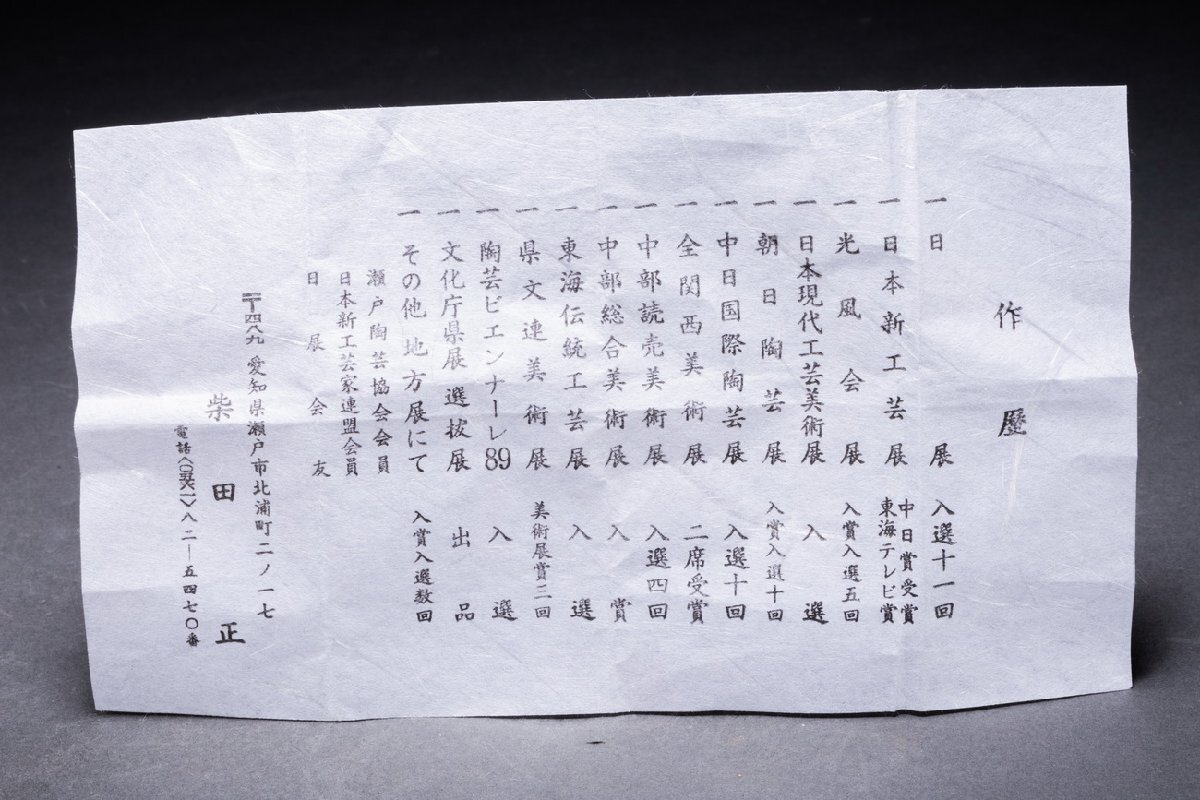 作歴
一 日展 入選十一回
一 日本新工芸展 中日賞受賞 東海テレビ賞
一 光風会展 入賞入選五回
一 日本現代工芸美術展 入選
一 朝日陶芸展 入賞入選十回
一 中日国際陶芸展 入選十回
一 全関西美術展 二席受賞
一 中部読売美術展 入選四回
一 中部総合美術展 入賞
一 東海伝統工芸展 入選
一 県文連美術展 美術展賞三回
一 陶芸ビエンナーレ89 入選
一 文化庁県展選抜展 出品
一 その他地方展にて 入賞入選数回
瀬戸陶芸協会会員
日本新工芸家連盟会員
日展会友
〒四八九 愛知県瀬戸市北浦町二ノ一七
柴田正
電話〈〇五六一〉八二―五四七〇番